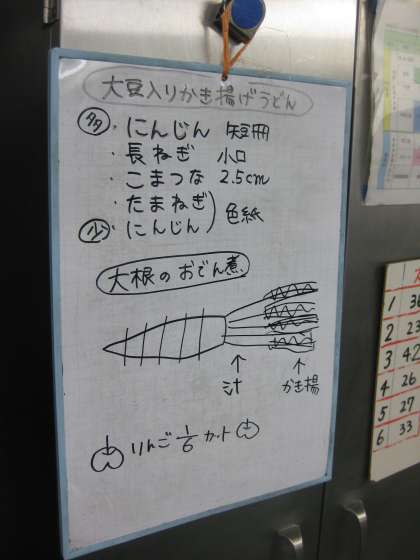 大豆入りかき揚げうどん
多・にんじん 短冊
・長ねぎ 小口
・こまつな 2.5cm
・たまねぎ 色紙
少・にんじん
大根のおでん煮
汁 かき揚
りんご 1/6 カット
1 36
2 23
3 42
4 26
5 27
6 33